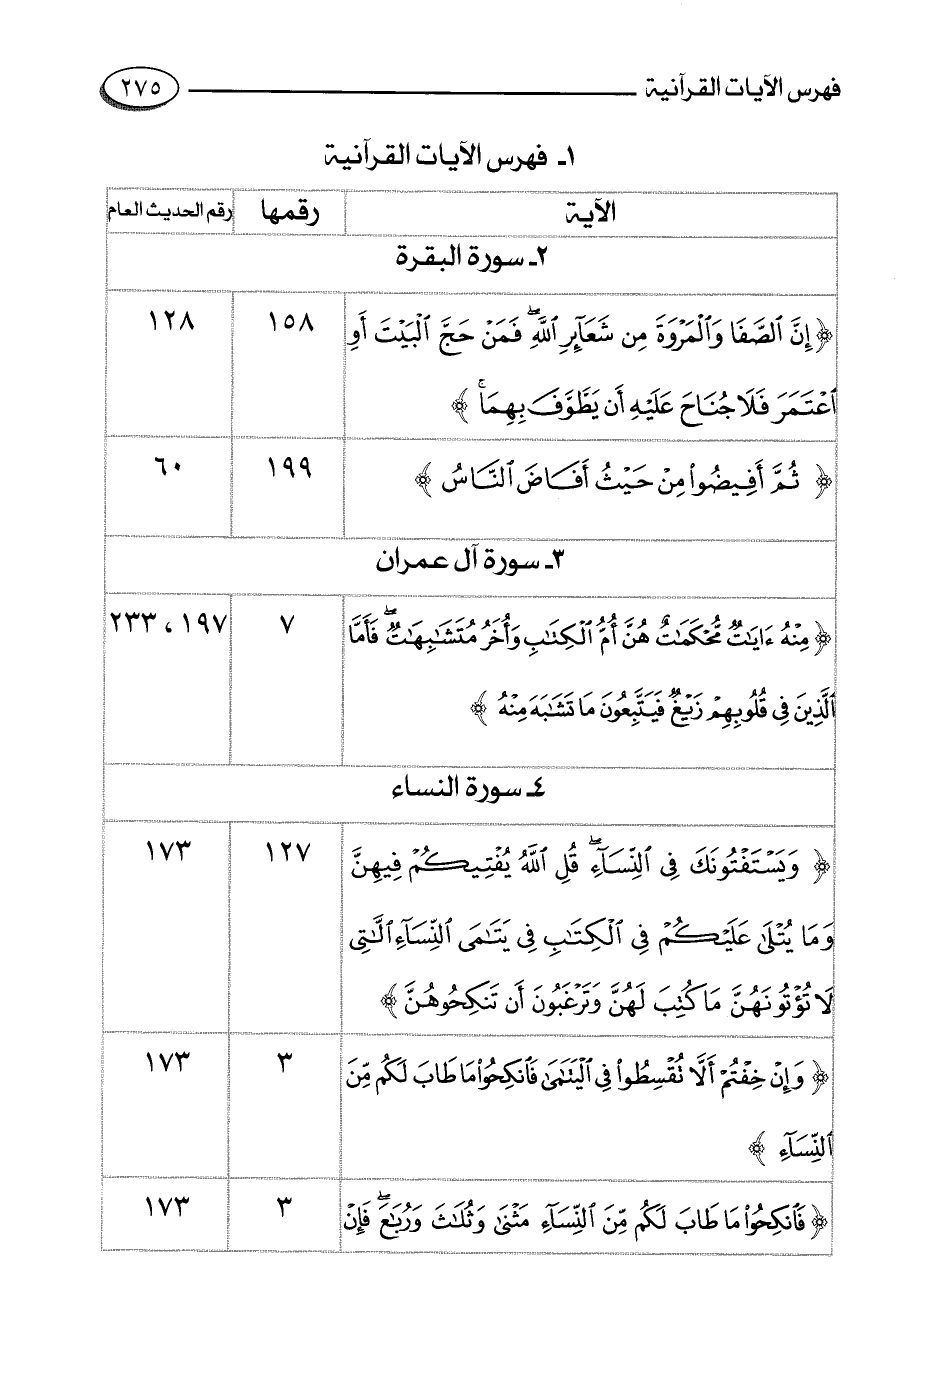 فهرس الآيات القرآنية ٢٧٥
١ـ فهرس الآيات القرآنية
الآية رقمها رقم الحديث العام
٢ـ سورة البقرة
﴿ إِنَّ ٱلصَّفَا وَٱلْمَرْوَةَ مِن شَعَآئِرِ ٱللَّهِۖ فَمَنْ حَجَّ ٱلْبَيْتَ أَوِ ١٥٨ ١٢٨
ٱعْتَمَرَ فَلَا جُنَاحَ عَلَيْهِ أَن يَطَّوَّفَ بِهِمَاۚ ﴾
﴿ ثُمَّ أَفِيضُوا۟ مِنْ حَيْثُ أَفَاضَ ٱلنَّاسُ ﴾ ١٩٩ ٦٠
٣ـ سورة آل عمران
﴿ مِنْهُ ءَايَٰتٌ مُّحْكَمَٰتٌ هُنَّ أُمُّ ٱلْكِتَٰبِ وَأُخَرُ مُتَشَٰبِهَٰتٌۖ فَأَمَّا ٧ ١٩٧، ٢٣٣
ٱلَّذِينَ فِى قُلُوبِهِمْ زَيْغٌ فَيَتَّبِعُونَ مَا تَشَٰبَهَ مِنْهُ ﴾
٤ـ سورة النساء
﴿ وَيَسْتَفْتُونَكَ فِى ٱلنِّسَآءِۖ قُلِ ٱللَّهُ يُفْتِيكُمْ فِيهِنَّ ١٢٧ ١٧٣
وَمَا يُتْلَىٰ عَلَيْكُمْ فِى ٱلْكِتَٰبِ فِى يَتَٰمَى ٱلنِّسَآءِ ٱلَّٰتِى
لَا تُؤْتُونَهُنَّ مَا كُتِبَ لَهُنَّ وَتَرْغَبُونَ أَن تَنكِحُوهُنَّ ﴾
﴿ وَإِنْ خِفْتُمْ أَلَّا تُقْسِطُوا۟ فِى ٱلْيَتَٰمَىٰ فَٱنكِحُوا۟ مَا طَابَ لَكُم مِّنَ ٣ ١٧٣
ٱلنِّسَآءِ ﴾
﴿ فَٱنكِحُوا۟ مَا طَابَ لَكُم مِّنَ ٱلنِّسَآءِ مَثْنَىٰ وَثُلَٰثَ وَرُبَٰعَۖ فَإِنْ ٣ ١٧٣